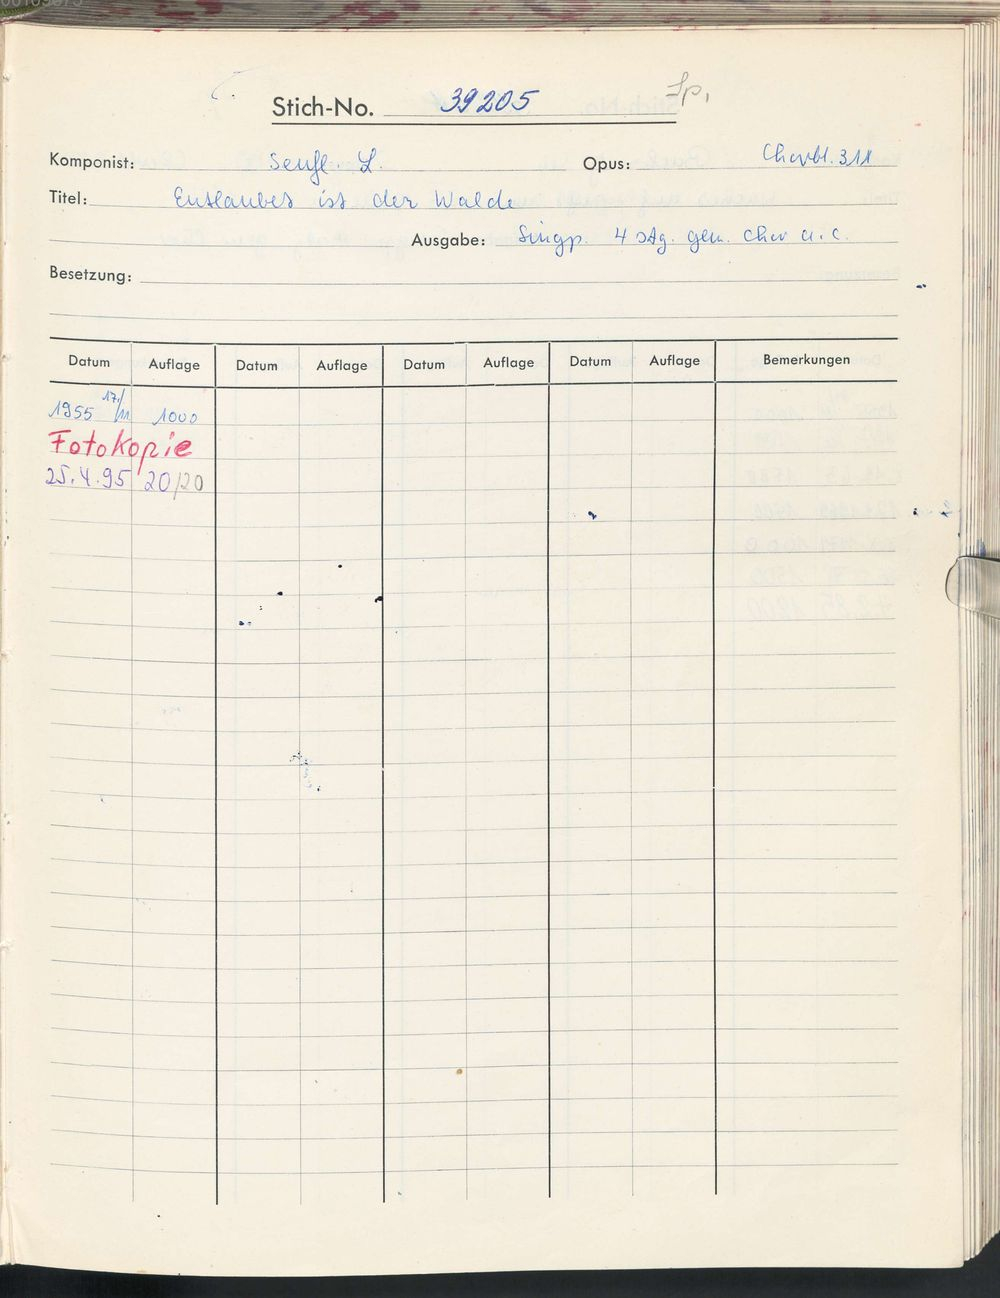 Stich-No. 39205 Sp.
Komponist: Senfl. L. Opus: Chorbl. 311
Titel: Entlaubet ist der Walde
Ausgabe: Singp. 4 stg. gem. Chor a. c.
Besetzung:
Datum Auflage Datum Auflage Datum Auflage Datum Auflage Bemerkungen
1955 17/11 1000
Fotokopie
25.4.95 20/20